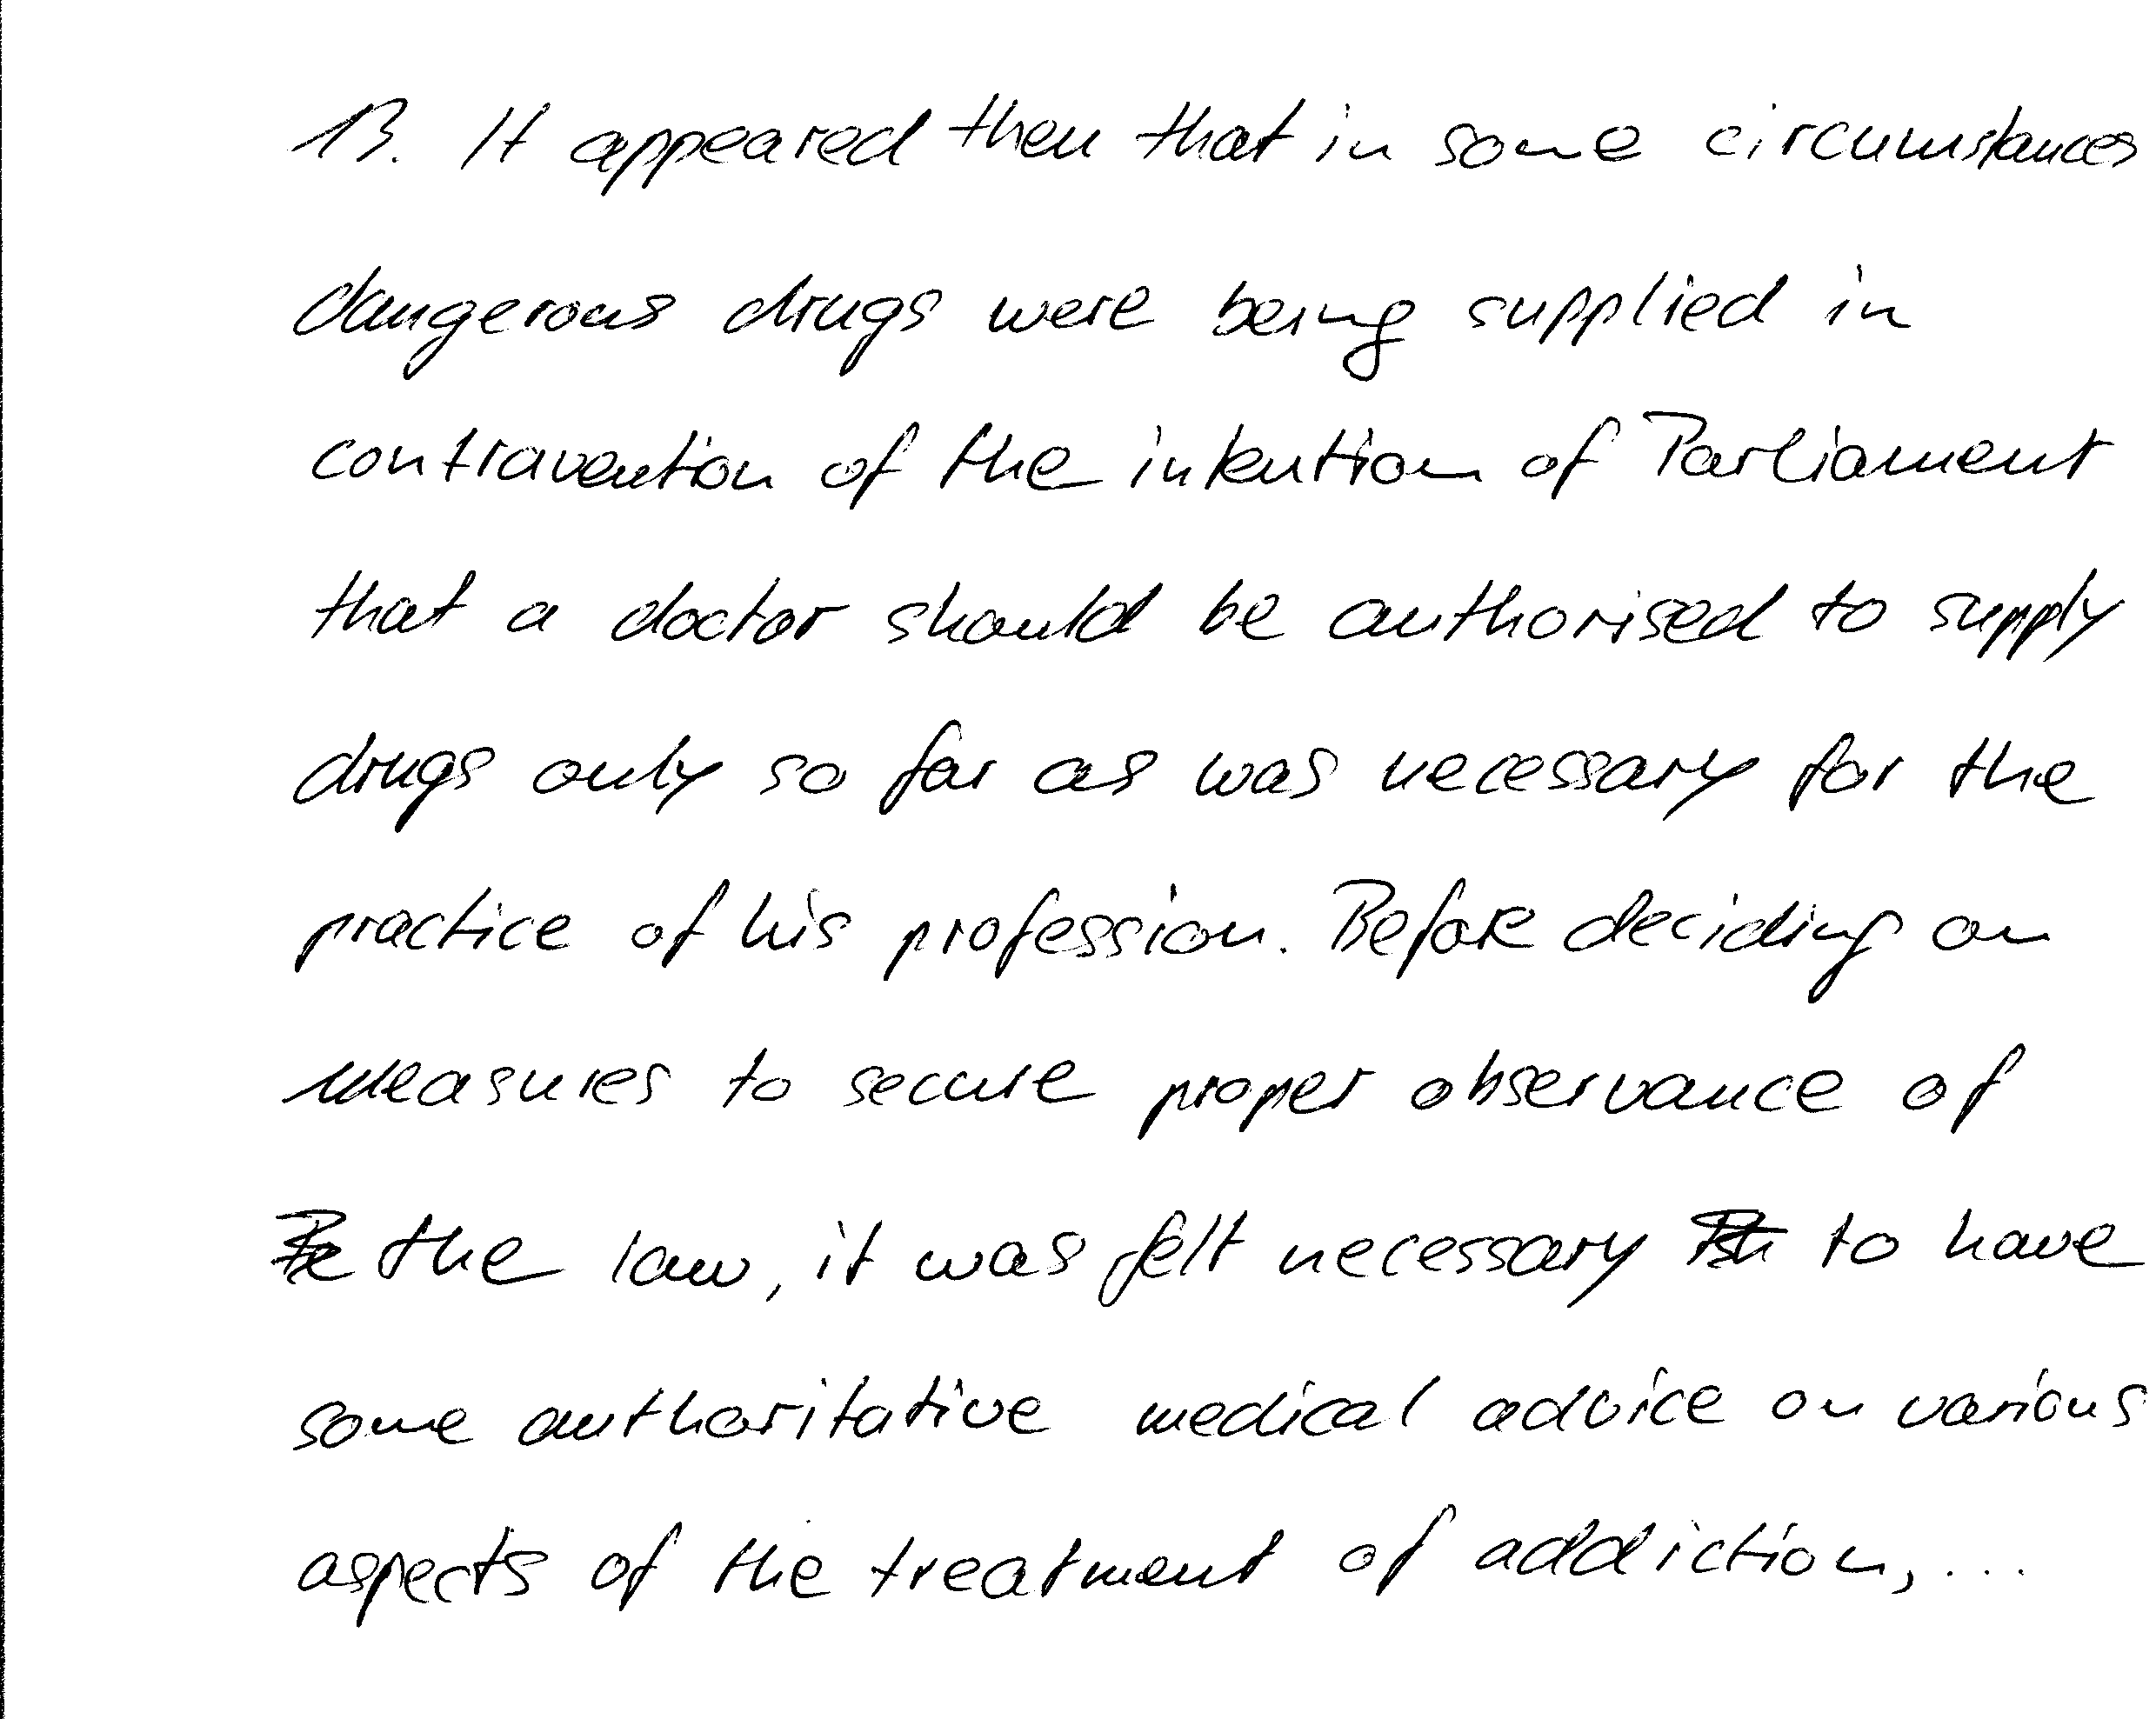 13. It appeared then that in some circumstances
dangerous drugs were being supplied in
contravention of the intention of Parliament
that a doctor should be authorised to supply
drugs only so far as was necessary for the
practice of his profession. Before deciding on
measures to secure proper observance of
the law, it was felt necessary to have
some authoritative medical advice on various
aspects of the treatment of addiction, ...